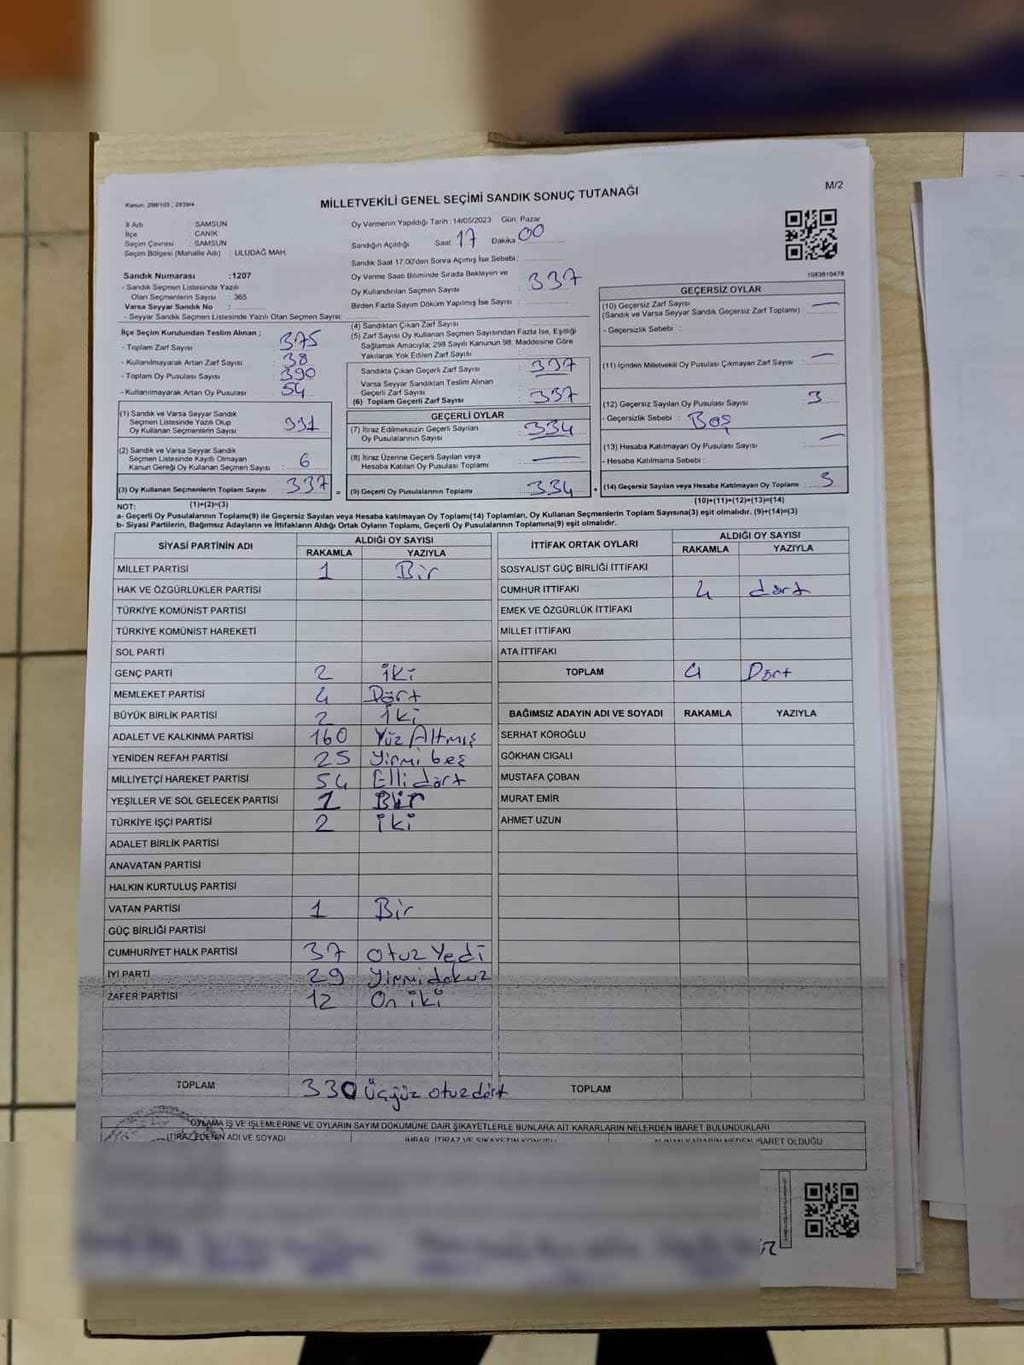 M/2
Kanun: 298/105 ; 2839/4
MİLLETVEKİLİ GENEL SEÇİMİ SANDIK SONUÇ TUTANAĞI
İl Adı : SAMSUN
İlçe : CANİK
Seçim Çevresi : SAMSUN
Seçim Bölgesi (Mahalle Adı) : ULUDAĞ MAH.
Oy Vermenin Yapıldığı Tarih : 14/05/2023 Gün: Pazar
Sandığın Açıldığı Saat 17 Dakika 00
Sandık Saat 17:00'den Sonra Açılmış İse Sebebi :
Oy Verme Saati Bitiminde Sırada Bekleyen ve
Oy Kullandırılan Seçmen Sayısı : 337
Birden Fazla Sayım Döküm Yapılmış İse Sayısı :
Sandık Numarası :1207
- Sandık Seçmen Listesinde Yazılı
Olan Seçmenlerin Sayısı : 365
Varsa Seyyar Sandık No :
- Seyyar Sandık Seçmen Listesinde Yazılı Olan Seçmen Sayısı:
İlçe Seçim Kurulundan Teslim Alınan ;
- Toplam Zarf Sayısı : 375
- Kullanılmayarak Artan Zarf Sayısı : 38
- Toplam Oy Pusulası Sayısı : 390
- Kullanılmayarak Artan Oy Pusulası : 54
(1) Sandık ve Varsa Seyyar Sandık
Seçmen Listesinde Yazılı Olup
Oy Kullanan Seçmenlerin Sayısı : 331
(2) Sandık ve Varsa Seyyar Sandık
Seçmen Listesinde Kayıtlı Olmayan
Kanun Gereği Oy Kullanan Seçmen Sayısı : 6
(3) Oy Kullanan Seçmenlerin Toplam Sayısı : 337
(1)+(2)=(3)
(4) Sandıktan Çıkan Zarf Sayısı
(5) Zarf Sayısı Oy Kullanan Seçmen Sayısından Fazla İse, Eşitliği
Sağlamak Amacıyla; 298 Sayılı Kanunun 98. Maddesine Göre
Yakılarak Yok Edilen Zarf Sayısı :
Sandıkta Çıkan Geçerli Zarf Sayısı : 337
Varsa Seyyar Sandıktan Teslim Alınan
Geçerli Zarf Sayısı :
(6) Toplam Geçerli Zarf Sayısı : 337
GEÇERLİ OYLAR
(7) İtiraz Edilmeksizin Geçerli Sayılan
Oy Pusulalarının Sayısı : 334
(8) İtiraz Üzerine Geçerli Sayılan veya
Hesaba Katılan Oy Pusulası Toplamı : —
(9) Geçerli Oy Pusulalarının Toplamı : 334
1083810478
GEÇERSİZ OYLAR
(10) Geçersiz Zarf Sayısı : —
(Sandık ve Varsa Seyyar Sandık Geçersiz Zarf Toplamı) :
- Geçersizlik Sebebi :
(11) İçinden Milletvekili Oy Pusulası Çıkmayan Zarf Sayısı : —
(12) Geçersiz Sayılan Oy Pusulası Sayısı : 3
- Geçersizlik Sebebi : Boş
(13) Hesaba Katılmayan Oy Pusulası Sayısı : —
- Hesaba Katılmama Sebebi :
(14) Geçersiz Sayılan veya Hesaba Katılmayan Oy Toplamı : 3
(10)+(11)+(12)+(13)=(14)
NOT:
a- Geçerli Oy Pusulalarının Toplamı(9) ile Geçersiz Sayılan veya Hesaba katılmayan Oy Toplamı(14) Toplamları, Oy Kullanan Seçmenlerin Toplam Sayısına(3) eşit olmalıdır. (9)+(14)=(3)
b- Siyasi Partilerin, Bağımsız Adayların ve İttifakların Aldığı Ortak Oyların Toplamı, Geçerli Oy Pusulalarının Toplamına(9) eşit olmalıdır.
SİYASİ PARTİNİN ADI ALDIĞI OY SAYISI
RAKAMLA YAZIYLA
MİLLET PARTİSİ 1 Bir
HAK VE ÖZGÜRLÜKLER PARTİSİ
TÜRKİYE KOMÜNİST PARTİSİ
TÜRKİYE KOMÜNİST HAREKETİ
SOL PARTİ
GENÇ PARTİ 2 iki
MEMLEKET PARTİSİ 4 Dört
BÜYÜK BİRLİK PARTİSİ 2 İki
ADALET VE KALKINMA PARTİSİ 160 Yüz Altmış
YENİDEN REFAH PARTİSİ 25 Yirmi beş
MİLLİYETÇİ HAREKET PARTİSİ 54 Elli dört
YEŞİLLER VE SOL GELECEK PARTİSİ 1 Bir
TÜRKİYE İŞÇİ PARTİSİ 2 iki
ADALET BİRLİK PARTİSİ
ANAVATAN PARTİSİ
HALKIN KURTULUŞ PARTİSİ
VATAN PARTİSİ 1 Bir
GÜÇ BİRLİĞİ PARTİSİ
CUMHURİYET HALK PARTİSİ 37 otuz Yedi
İYİ PARTİ 29 yirmi dokuz
ZAFER PARTİSİ 12 On iki
TOPLAM 330 üçyüz otuzdört
İTTİFAK ORTAK OYLARI ALDIĞI OY SAYISI
RAKAMLA YAZIYLA
SOSYALİST GÜÇ BİRLİĞİ İTTİFAKI
CUMHUR İTTİFAKI 4 dört
EMEK VE ÖZGÜRLÜK İTTİFAKI
MİLLET İTTİFAKI
ATA İTTİFAKI
TOPLAM 4 Dört
BAĞIMSIZ ADAYIN ADI VE SOYADI RAKAMLA YAZIYLA
SERHAT KÖROĞLU
GÖKHAN CIGALI
MUSTAFA ÇOBAN
MURAT EMİR
AHMET UZUN
TOPLAM
OYLAMA İŞ VE İŞLEMLERİNE VE OYLARIN SAYIM DÖKÜMÜNE DAİR ŞİKAYETLERLE BUNLARA AİT KARARLARIN NELERDEN İBARET BULUNDUKLARI
İTİRAZ EDENİN ADI VE SOYADI İHBAR, İTİRAZ VE ŞİKAYETİN KONUSU ALINAN KARARIN NEDEN İBARET OLDUĞU